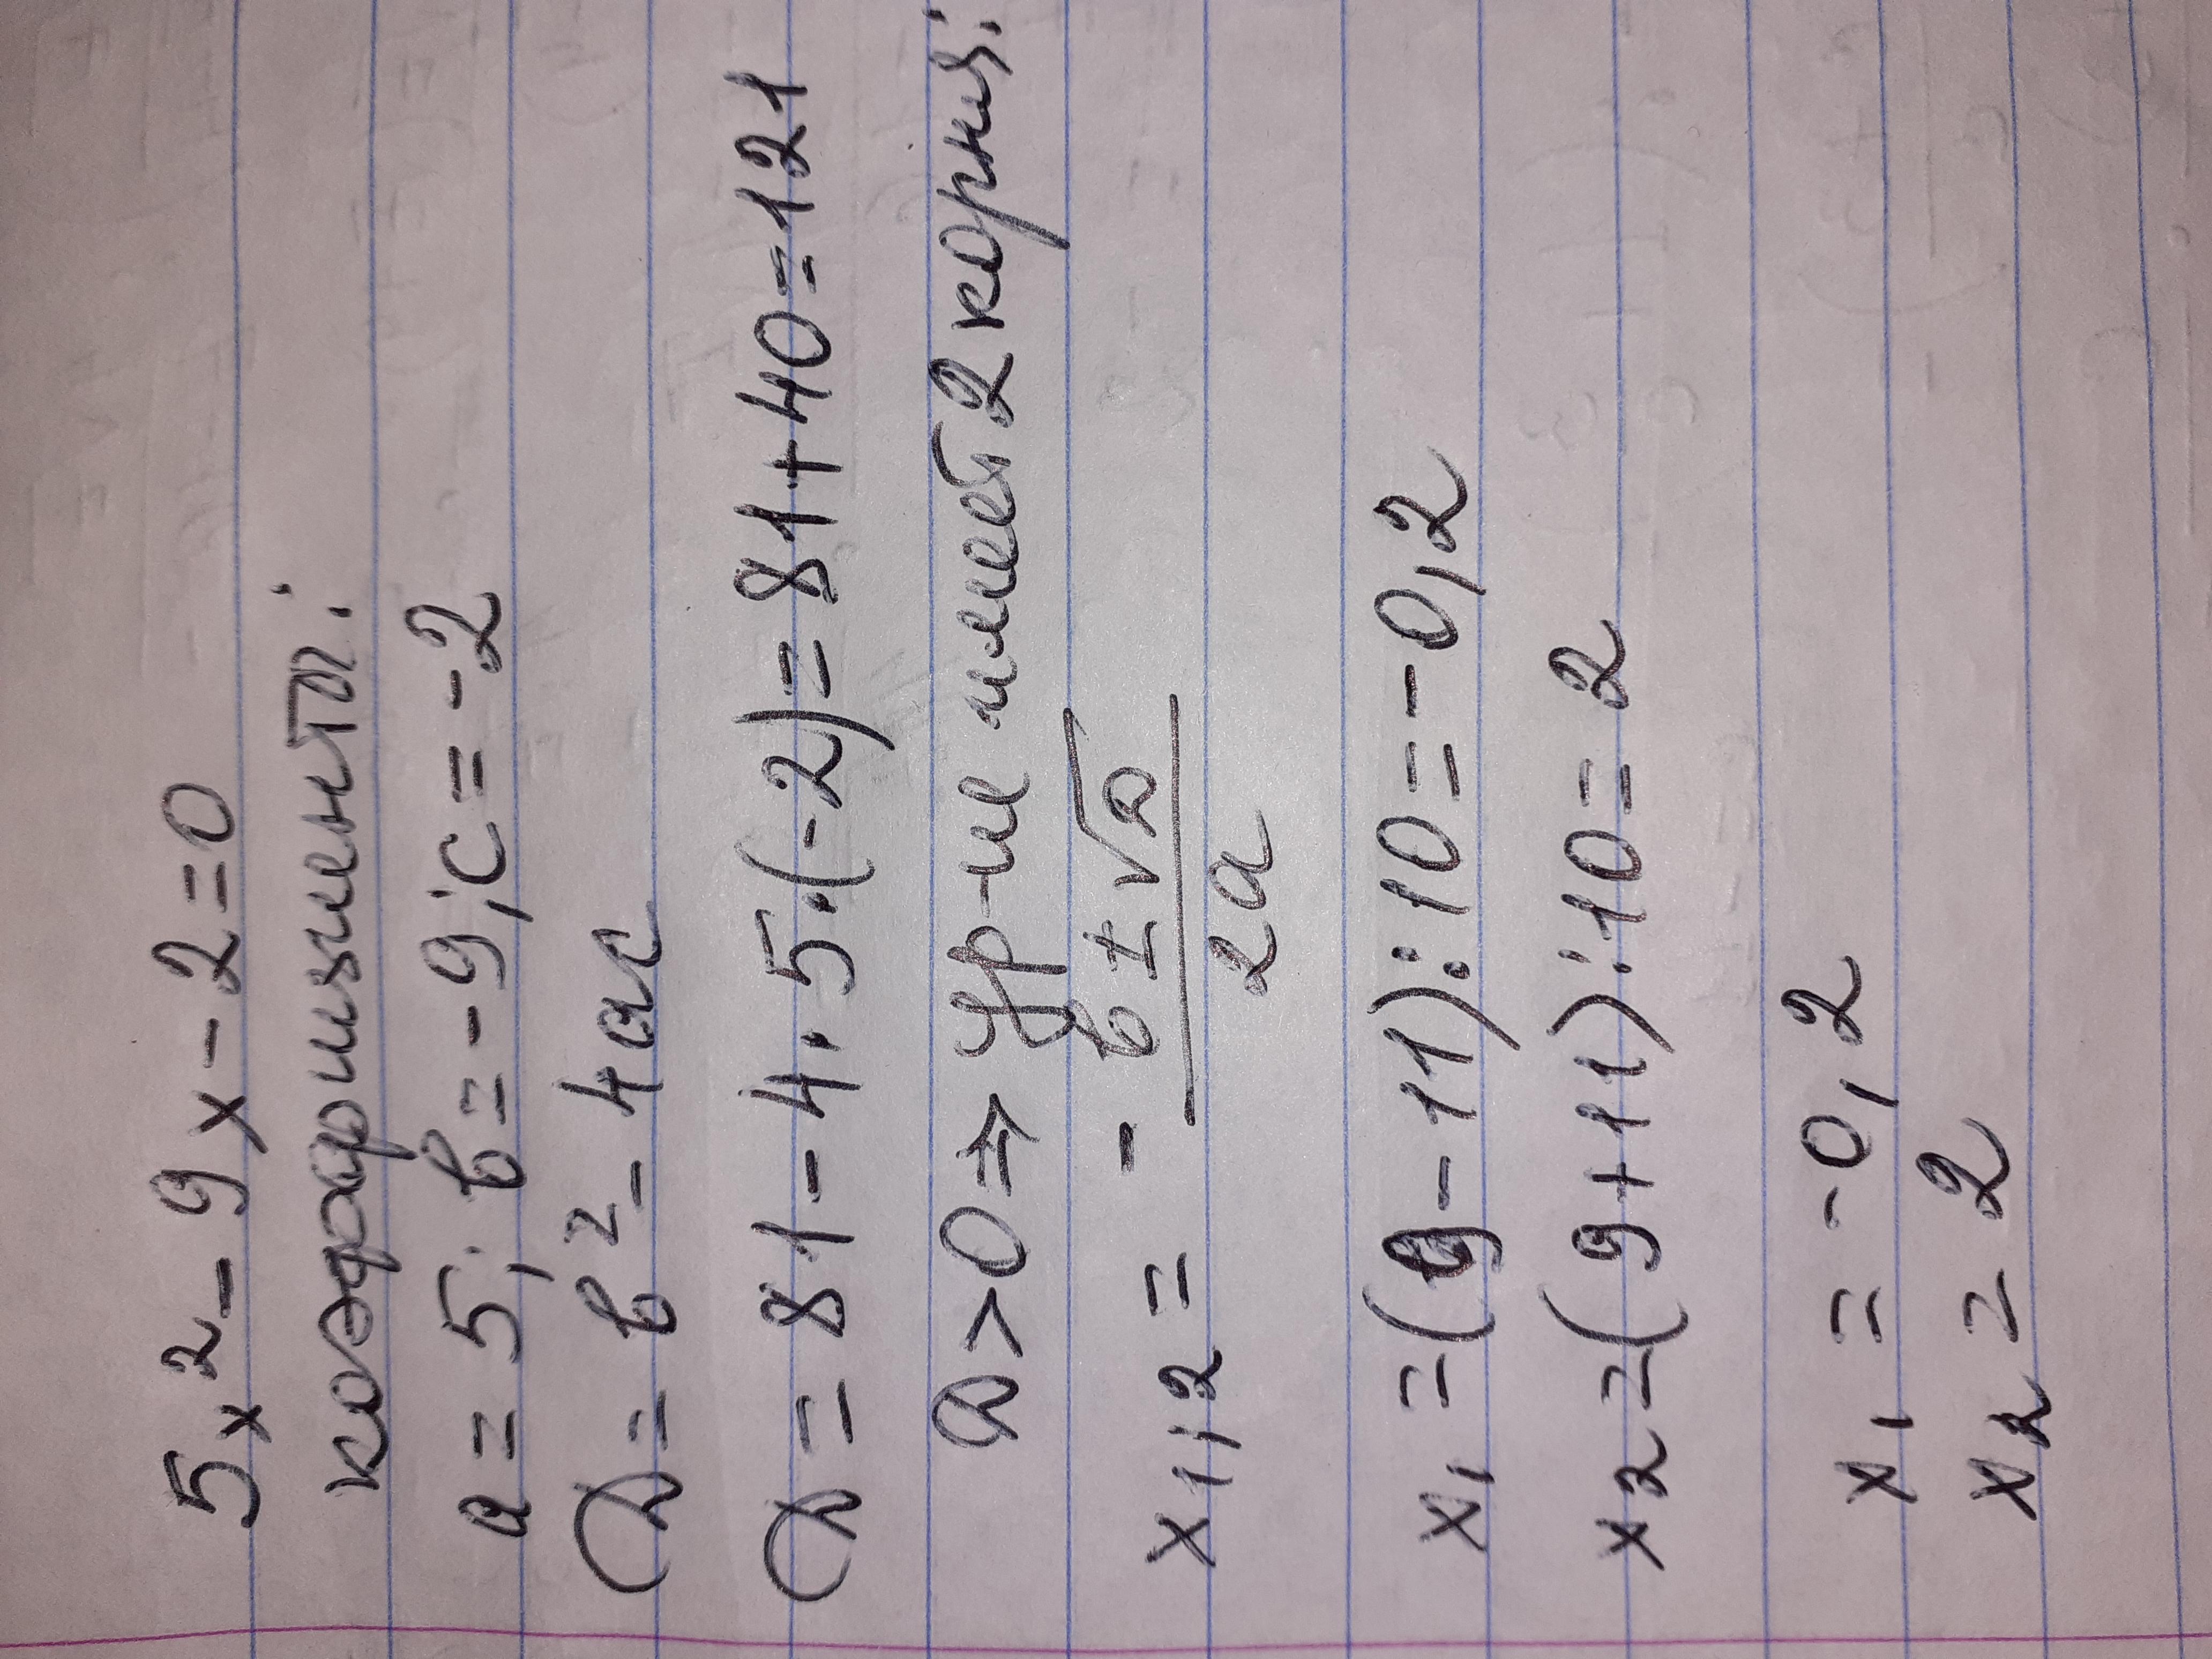 5x² - 9x - 2 = 0
коэфрициенты:
a = 5; b = -9; c = -2
D = b² - 4ac
D = 81 - 4 · 5 · (-2) = 81 + 40 = 121
D > 0 ⇒ ур-ие имеет 2 корния:
x₁,₂ = - b ± √D / 2a
x₁ = (9 - 11) : 10 = -0,2
x₂ = (9 + 11) : 10 = 2
x₁ = -0,2
x₂ = 2